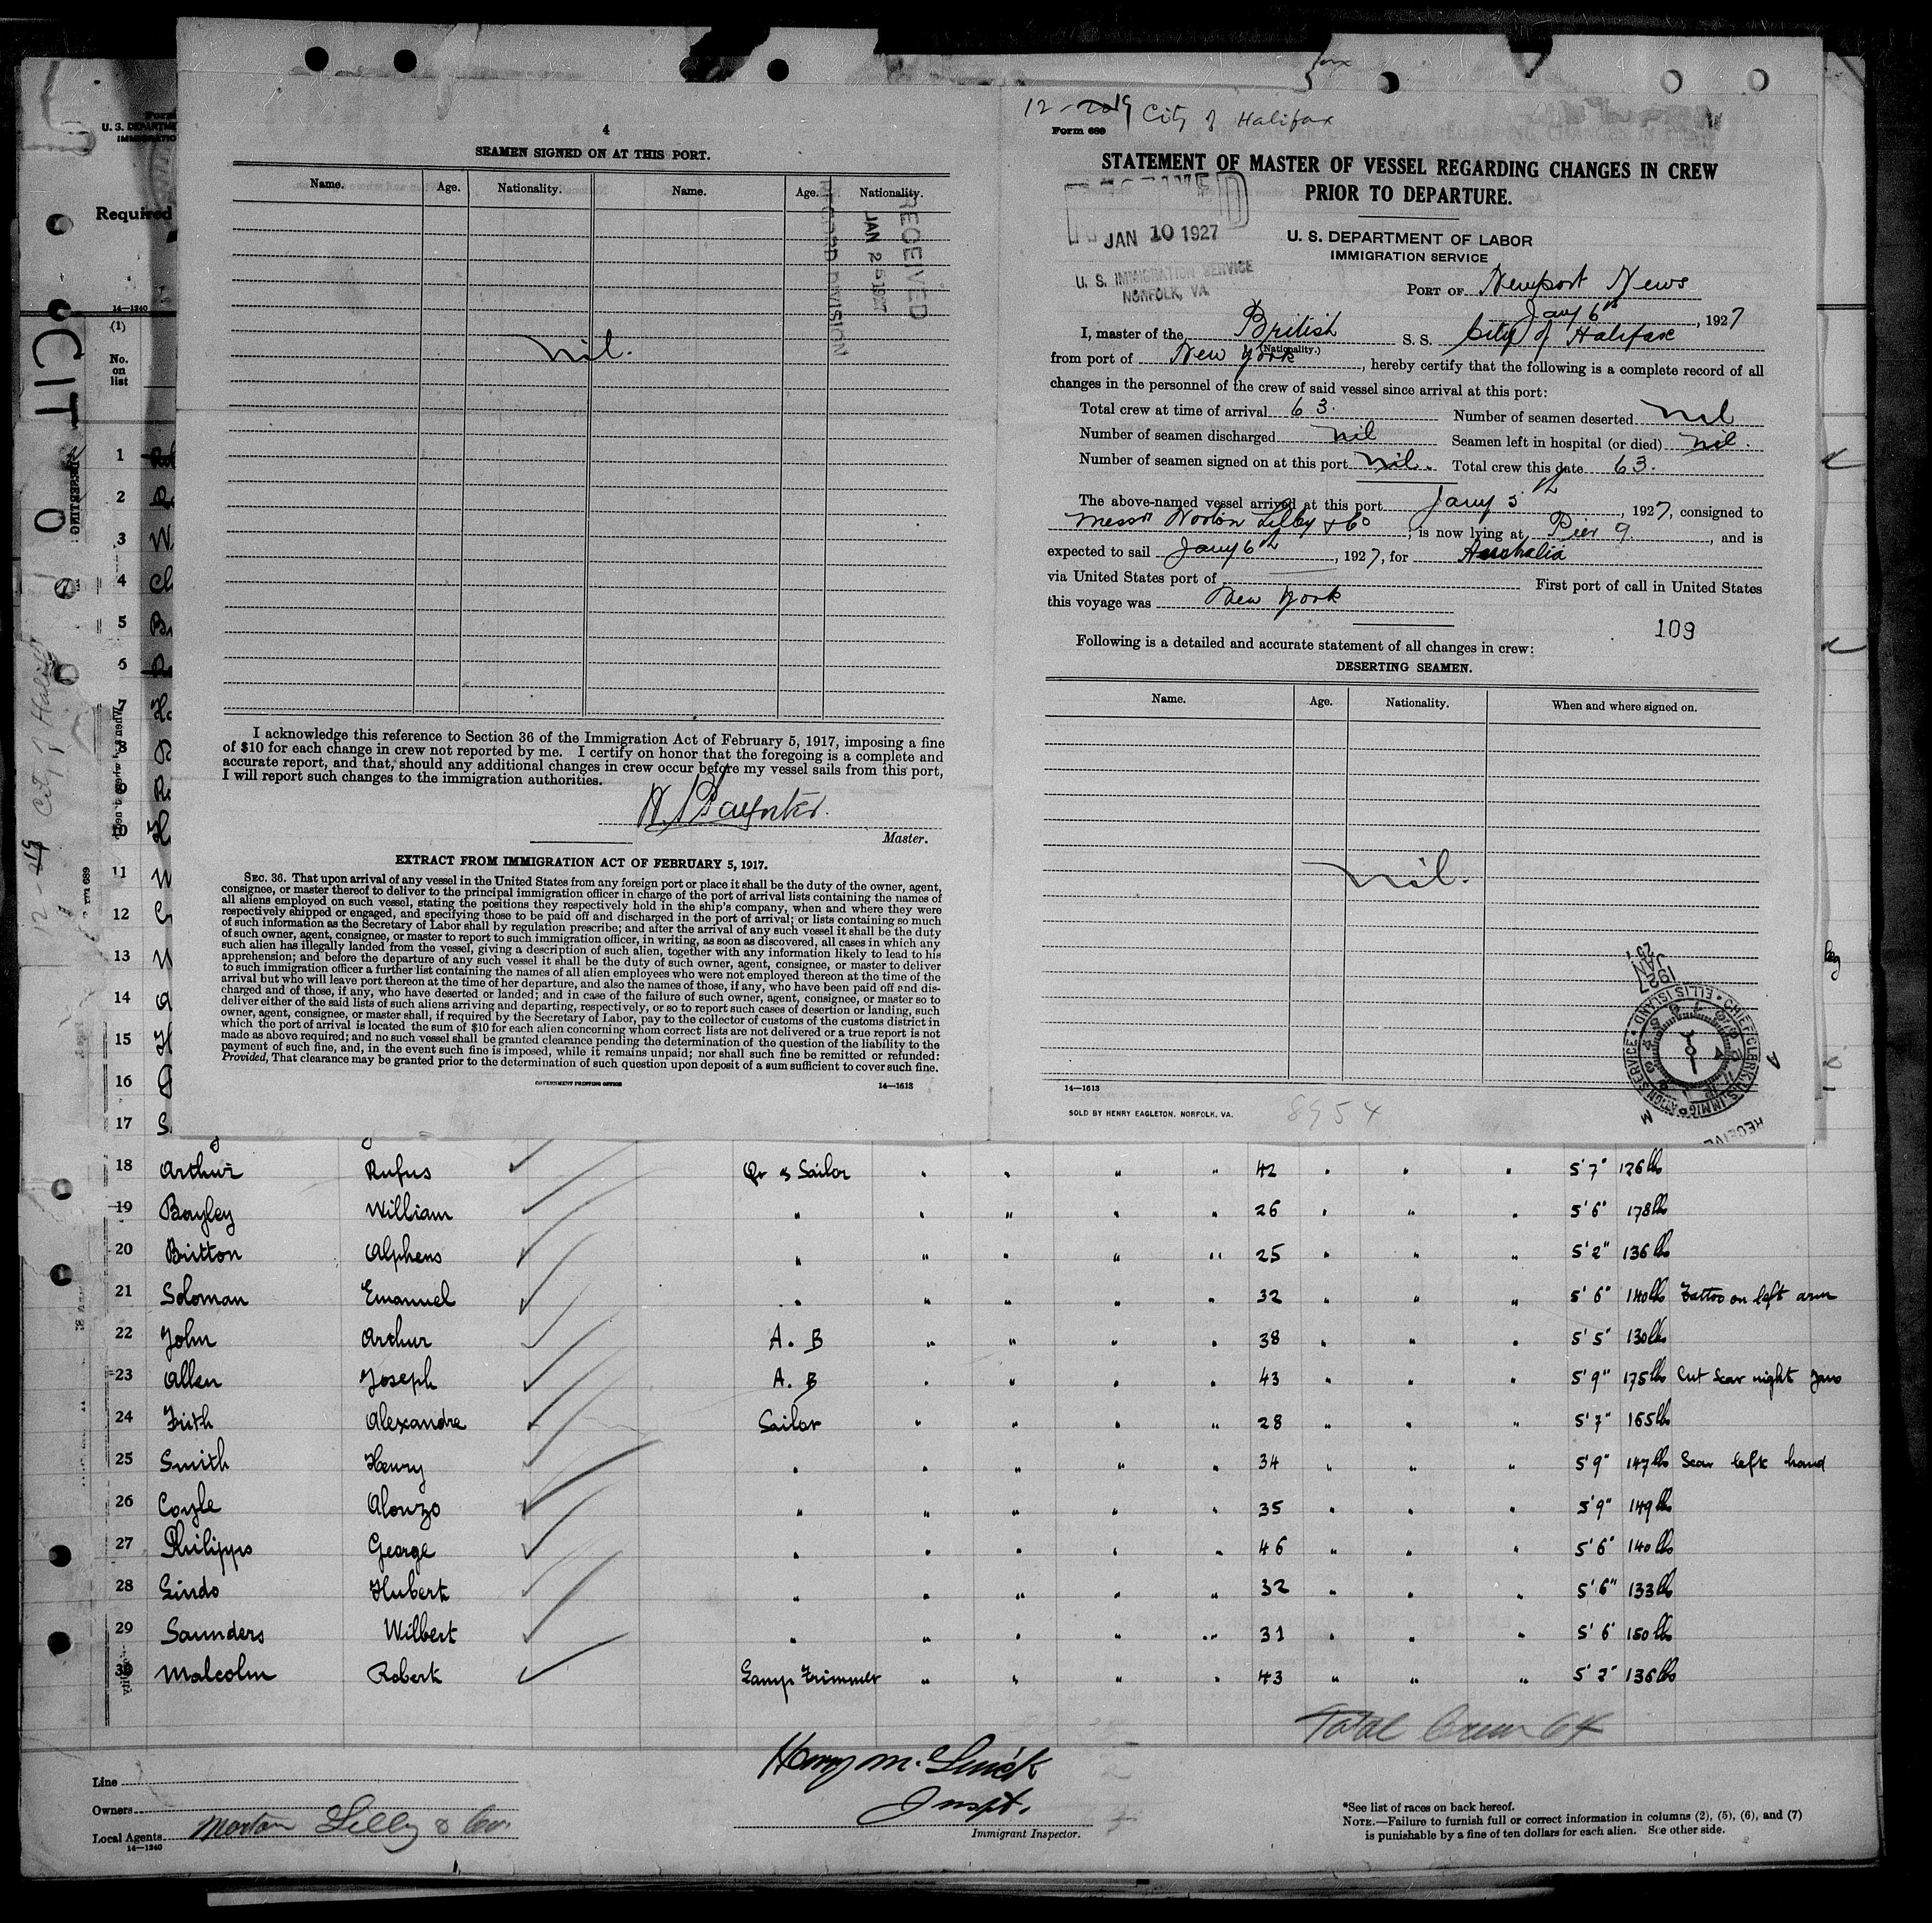 4
SEAMEN SIGNED ON AT THIS PORT.
Name. Age. Nationality. Name. Age. Nationality.
RECEIVED
JAN 25 1927
RECORD DIVISION
nil.
I acknowledge this reference to Section 36 of the Immigration Act of February 5, 1917, imposing a fine
of $10 for each change in crew not reported by me. I certify on honor that the foregoing is a complete and
accurate report, and that, should any additional changes in crew occur before my vessel sails from this port,
I will report such changes to the immigration authorities.
Master.
EXTRACT FROM IMMIGRATION ACT OF FEBRUARY 5, 1917.
SEC. 36. That upon arrival of any vessel in the United States from any foreign port or place it shall be the duty of the owner, agent,
consignee, or master thereof to deliver to the principal immigration officer in charge of the port of arrival lists containing the names of
all aliens employed on such vessel, stating the positions they respectively hold in the ship's company, when and where they were
respectively shipped or engaged, and specifying those to be paid off and discharged in the port of arrival; or lists containing so much
of such information as the Secretary of Labor shall by regulation prescribe; and after the arrival of any such vessel it shall be the duty
of such owner, agent, consignee, or master to report to such immigration officer, in writing, as soon as discovered, all cases in which any
such alien has illegally landed from the vessel, giving a description of such alien, together with any information likely to lead to his
apprehension; and before the departure of any such vessel it shall be the duty of such owner, agent, consignee, or master to deliver
to such immigration officer a further list containing the names of all alien employees who were not employed thereon at the time of the
arrival but who will leave port thereon at the time of her departure, and also the names of those, if any, who have been paid off and dis-
charged and of those, if any, who have deserted or landed; and in case of the failure of such owner, agent, consignee, or master so to
deliver either of the said lists of such aliens arriving and departing, respectively, or so to report such cases of desertion or landing, such
owner, agent, consignee, or master shall, if required by the Secretary of Labor, pay to the collector of customs of the customs district in
which the port of arrival is located the sum of $10 for each alien concerning whom correct lists are not delivered or a true report is not
made as above required; and no such vessel shall be granted clearance pending the determination of the question of the liability to the
payment of such fine, and, in the event such fine is imposed, while it remains unpaid; nor shall such fine be remitted or refunded:
Provided, That clearance may be granted prior to the determination of such question upon deposit of a sum sufficient to cover such fine.
GOVERNMENT PRINTING OFFICE 14—1613
City of Halifax
Form 689
STATEMENT OF MASTER OF VESSEL REGARDING CHANGES IN CREW
PRIOR TO DEPARTURE.
JAN 10 1927
U. S. IMMIGRATION SERVICE
NORFOLK, VA.
U. S. DEPARTMENT OF LABOR
IMMIGRATION SERVICE
PORT OF Newport News
Jany 6th, 1927
I, master of the British S. S. City of Halifax
(Nationality.)
from port of New York, hereby certify that the following is a complete record of all
changes in the personnel of the crew of said vessel since arrival at this port:
Total crew at time of arrival 63. Number of seamen deserted nil
Number of seamen discharged nil Seamen left in hospital (or died) nil.
Number of seamen signed on at this port nil. Total crew this date 63.
The above-named vessel arrived at this port Jany 5th, 1927, consigned to
Messrs Norton Lilly & Co, is now lying at Pier 9., and is
expected to sail Jany 6th, 1927, for Australia
via United States port of First port of call in United States
this voyage was New York
109
Following is a detailed and accurate statement of all changes in crew:
DESERTING SEAMEN.
Name. Age. Nationality. When and where signed on.
nil.
14—1613
SOLD BY HENRY EAGLETON, NORFOLK, VA. 8954
U. S. DEPARTME
IMMIGRATIO
Required
14—1240
(1)
No.
on
list
CIT O
1
2
3 W
4 Ch
5
6
7
8
9
10
11
12
13
14
15
16
17
18 Arthur Rufus Qr & Sailor " " " " 42 " " " 5'7" 126lbs
19 Bayley William " " " " " 26 " " " 5'6" 178lbs
20 Britton Alphens " " " " " 25 " " " 5'2" 136lbs
21 Soloman Emanuel " " " " " 32 " " " 5'6" 140lbs Tattoo on left arm
22 John Arthur A. B " " " " 38 " " " 5'5" 130lbs
23 Allen Joseph A. B " " " " 43 " " " 5'9" 175lbs Cut Scar right Jaw
24 Frith Alexandre Sailor " " " " 28 " " " 5'7" 165lbs
25 Smith Henry " " " " " 34 " " " 5'9" 147lbs Scar left hand
26 Coyle Alonzo " " " " " 35 " " " 5'9" 149lbs
27 Philipps George " " " " " 46 " " " 5'6" 140lbs
28 Lindo Hubert " " " " " 32 " " " 5'6" 133lbs
29 Saunders Wilbert " " " " " 31 " " " 5'6" 150lbs
30 Malcolm Robert Lamp Trimmer " " " " 43 " " " 5'2" 136lbs
Total Crew 64
Line
Owners
Local Agents Norton Lilly & Co.
14—1240
Inspt.
Immigrant Inspector.
*See list of races on back hereof.
NOTE.—Failure to furnish full or correct information in columns (2), (5), (6), and (7)
is punishable by a fine of ten dollars for each alien. See other side.